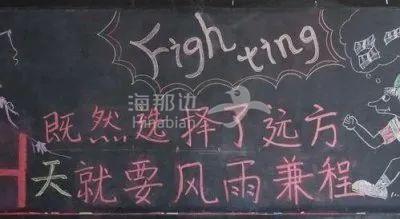 Fighting
海那边
Hinabian
既然选择了远方
天就要风雨兼程